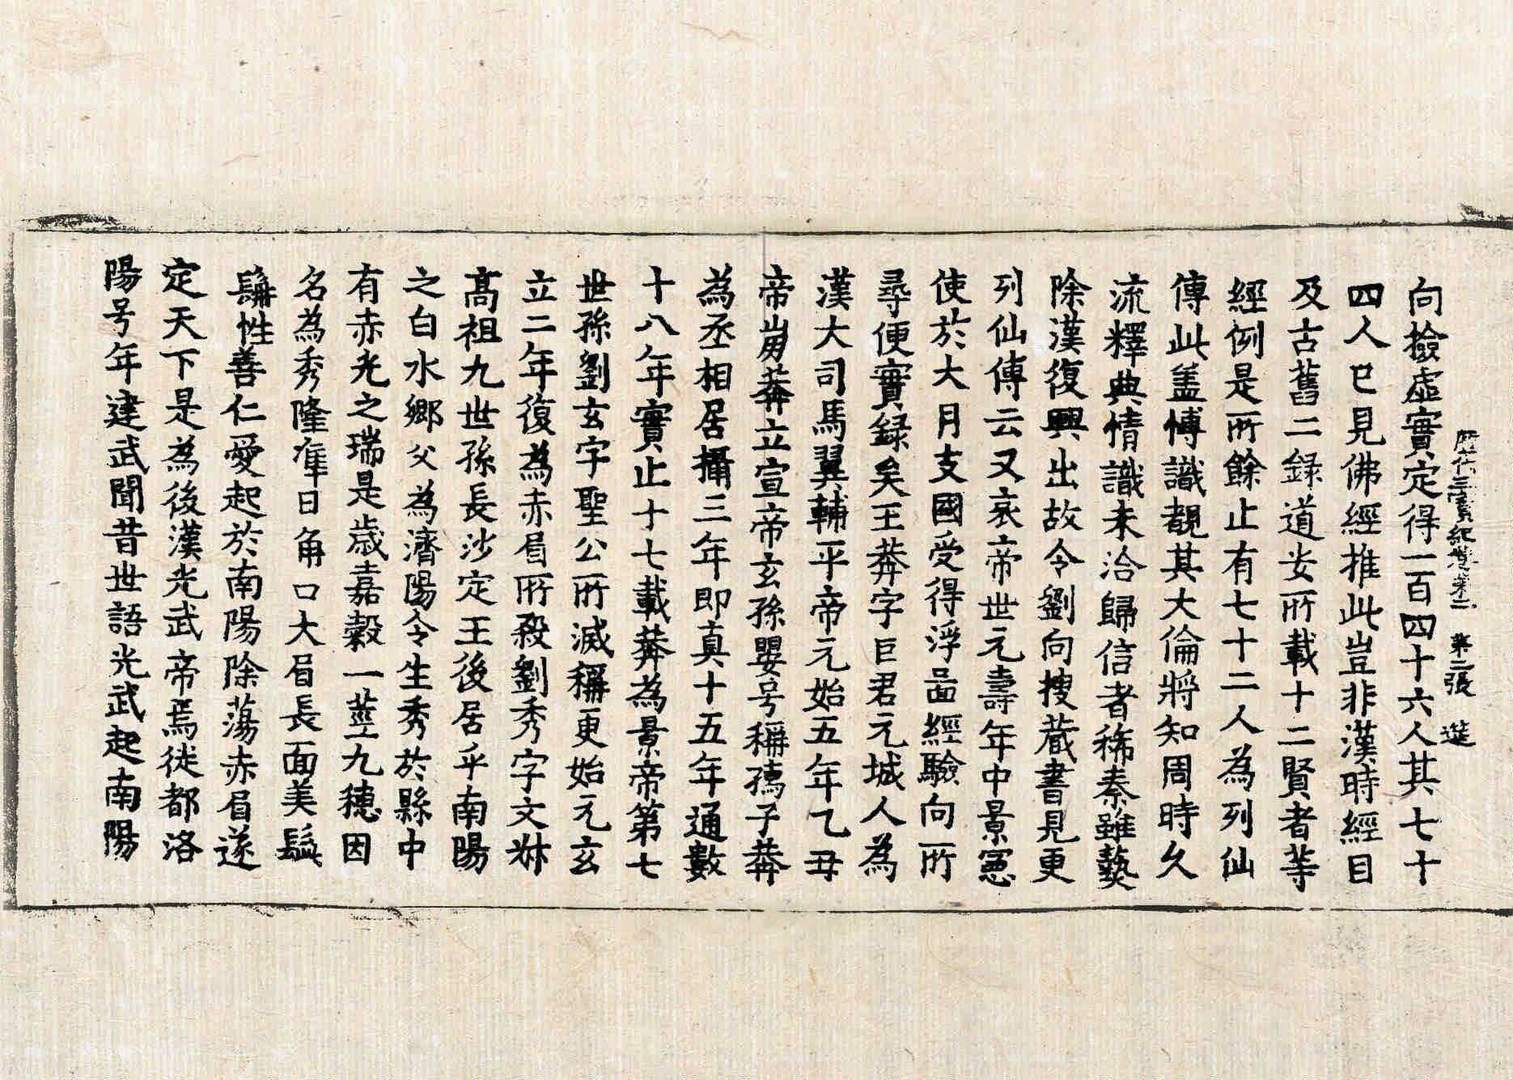 歷代三寶紀卷第二 第二張 選
向撿虛實定得一百四十六人其七十
四人已見佛經推此豈非漢時經目
及古舊二錄道安所載十二賢者等
經例是所餘止有七十二人為列仙
傳此盖博識覩其大倫將知周時久
流釋典情識未洽歸信者稀秦雖爇
除漢復興出故令劉向搜藏書見更
列仙傳云又哀帝世元壽年中景憲
使於大月支國受得浮啚經驗向所
尋便實録矣王莽字巨君元城人為
漢大司馬翼輔平帝元始五年乙丑
帝崩莽立宣帝玄孫嬰号稱孺子莽
為丞相居攝三年即真十五年通數
十八年實止十七載莽為景帝第七
世孫劉玄字聖公所滅稱更始元玄
立二年復為赤眉所殺劉秀字文州
高祖九世孫長沙定王後居乎南陽
之白水鄉父為濟陽令生秀於縣中
有赤光之瑞是歲嘉穀一莖九穗因
名為秀隆準日角口大眉長面美髭
鬚性善仁愛起於南陽除蕩赤眉遂
定天下是為後漢光武帝焉徙都洛
陽号年建武聞昔世語光武起南陽